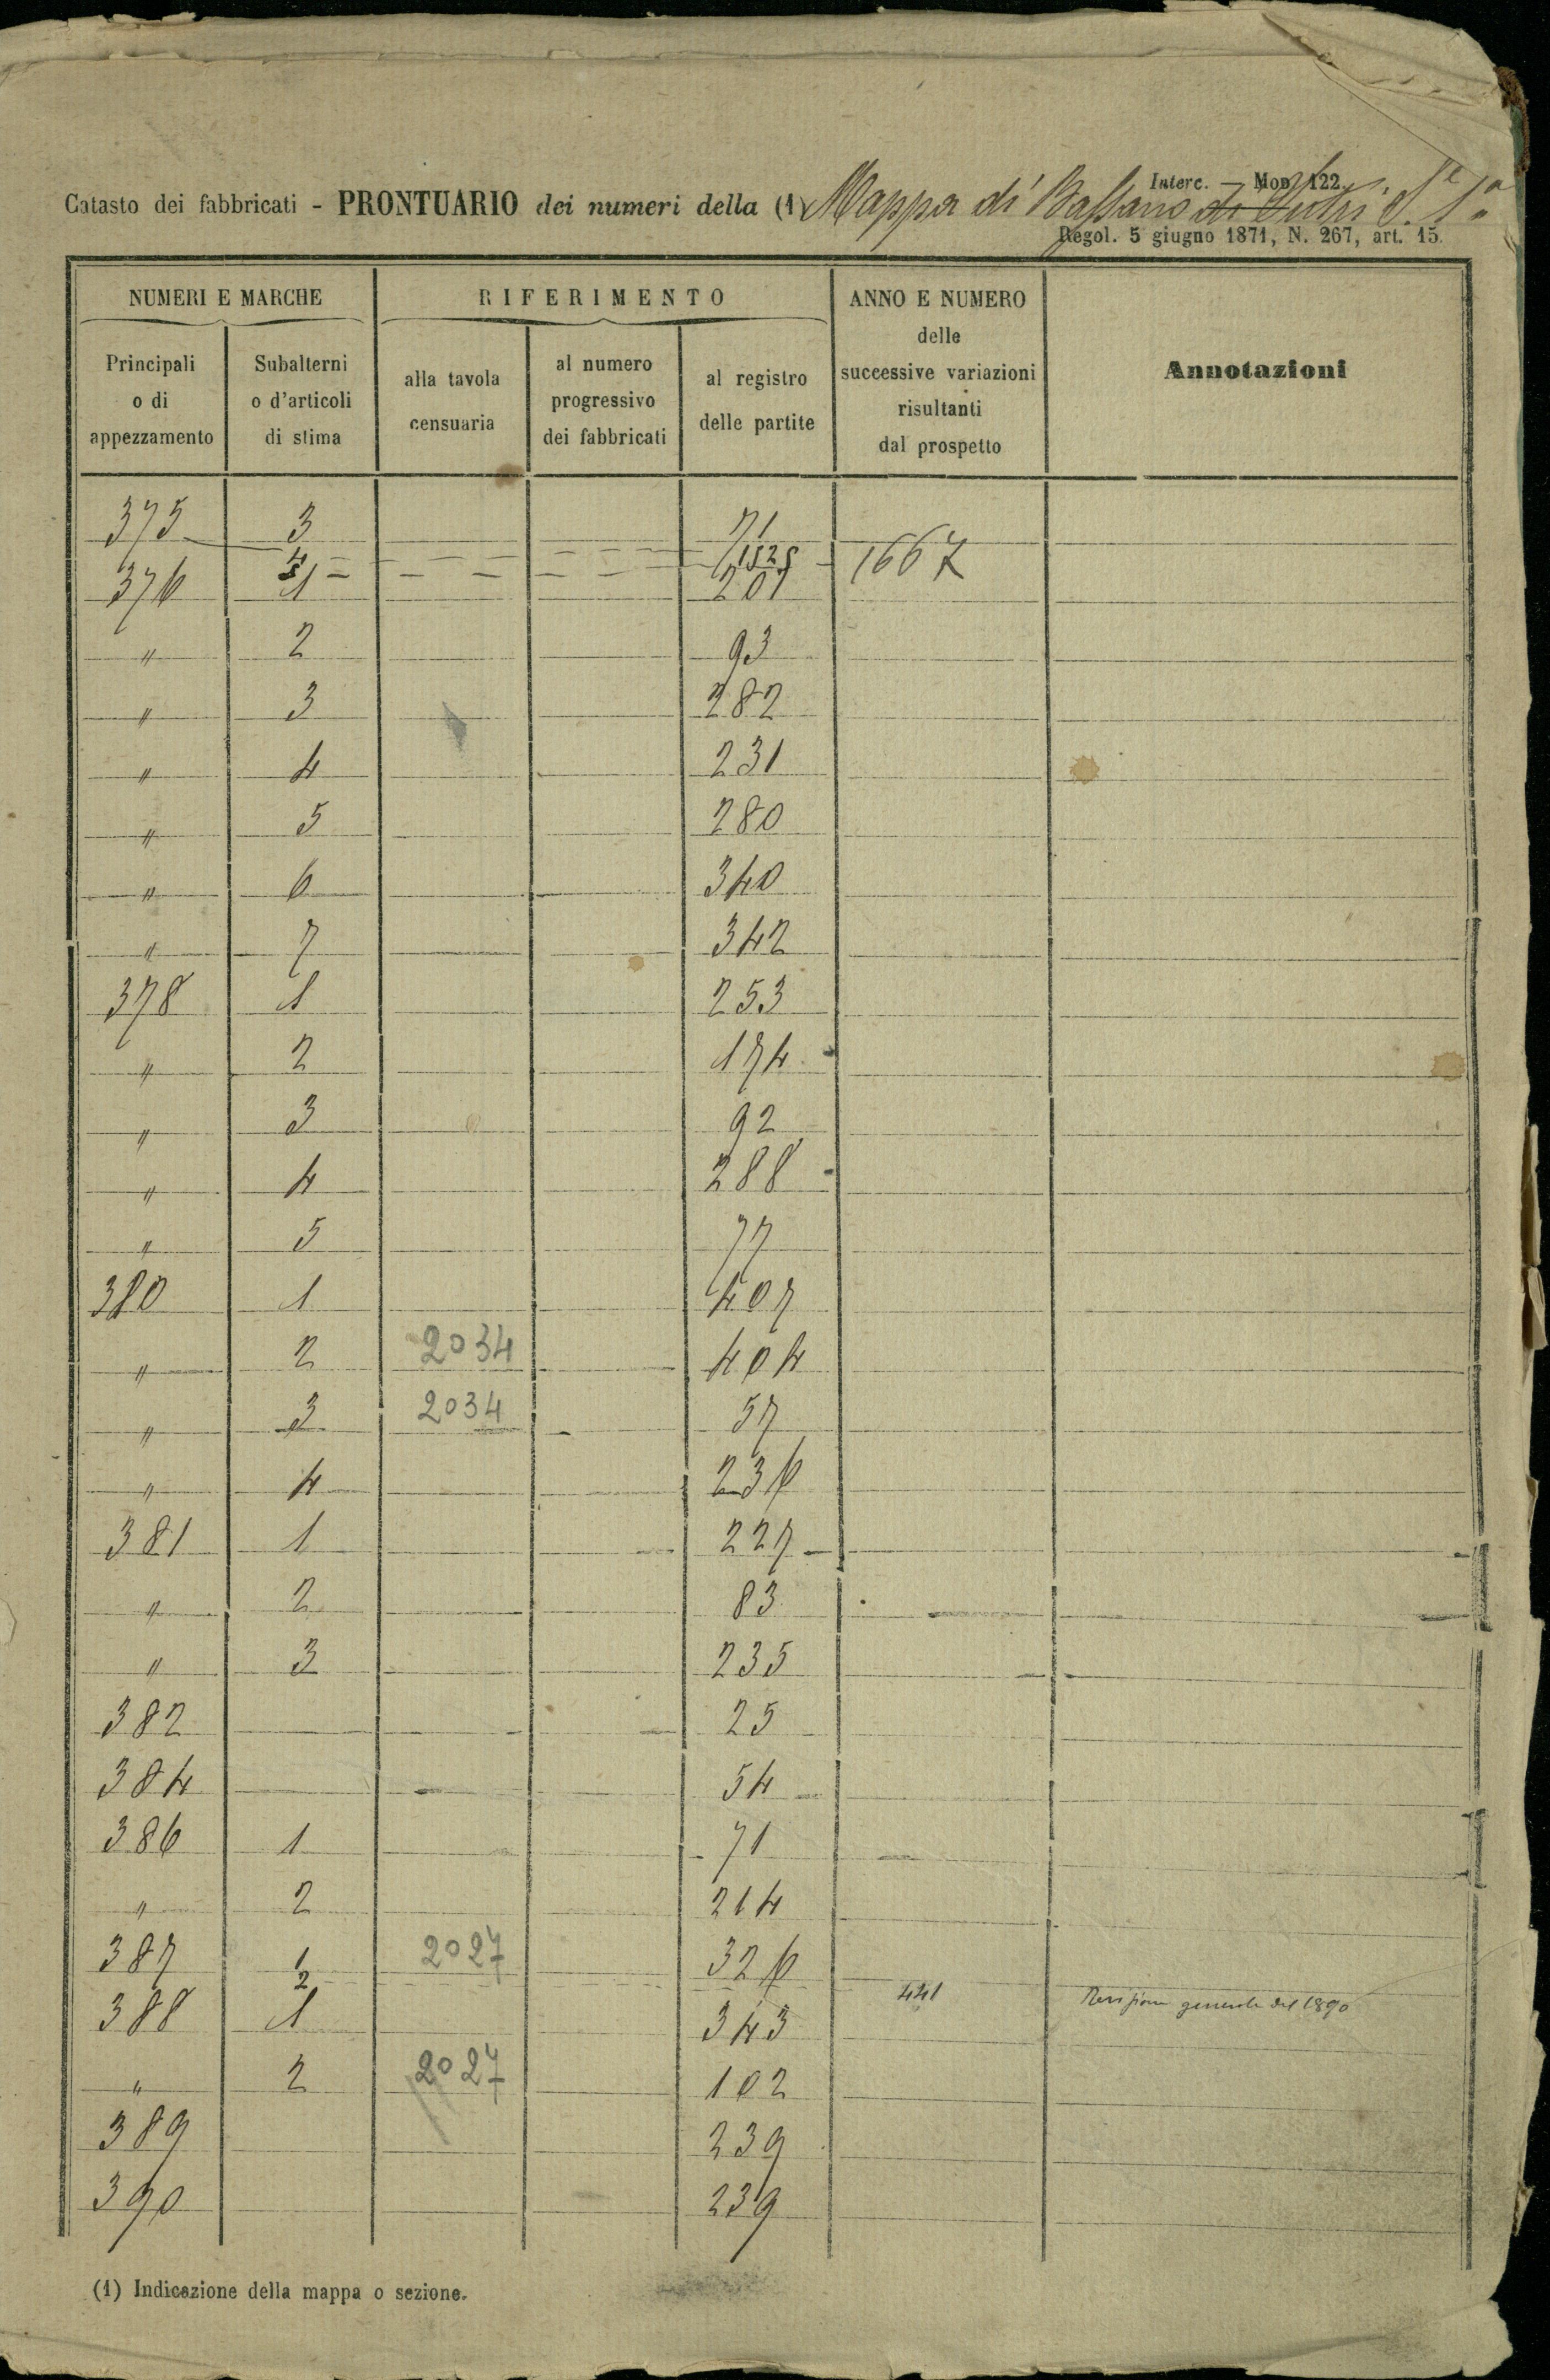 Interc. — Mod. 122.
Catasto dei fabbricati - PRONTUARIO dei numeri della (1) Mappa di Bassano di Sutri S.e 1a
Regol. 5 giugno 1871, N. 267, art. 15.
NUMERI E MARCHE RIFERIMENTO ANNO E NUMERO delle successive variazioni risultanti dal prospetto Annotazioni
Principali o di appezzamento Subalterni o d'articoli di stima alla tavola censuaria al numero progressivo dei fabbricati al registro delle partite
375 3 71
4 1525 1667
5
376 1 201
" 2 93
" 3 282
" 4 231
" 5 280
" 6 340
" 7 342
378 1 253
" 2 174
" 3 92
" 4 288
" 5 77
380 1 407
" 2 2034 404
" 3 2034 57
" 4 236
381 1 227
" 2 83
" 3 235
382 25
384 54
386 1 71
" 2 214
387 1 2027 326
2 441 Revisione generale del 1890
388 1 343
" 2 2027 102
389 239
390 239
(1) Indicazione della mappa o sezione.